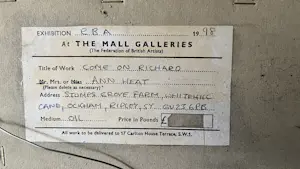 EXHIBITION RBA 1998
At THE MALL GALLERIES
(The Federation of British Artists)
Title of Work COME ON RICHARD
Mr. Mrs. or Miss ANN HEAT
(Please delete as necessary)
Address STONES GROVE FARM,
LANE, OCKHAM, RIPLEY, SY. GU23 6PB
Medium OIL Price in Pounds £
All work to be delivered to 17 Carlton House Terrace, S.W.1.